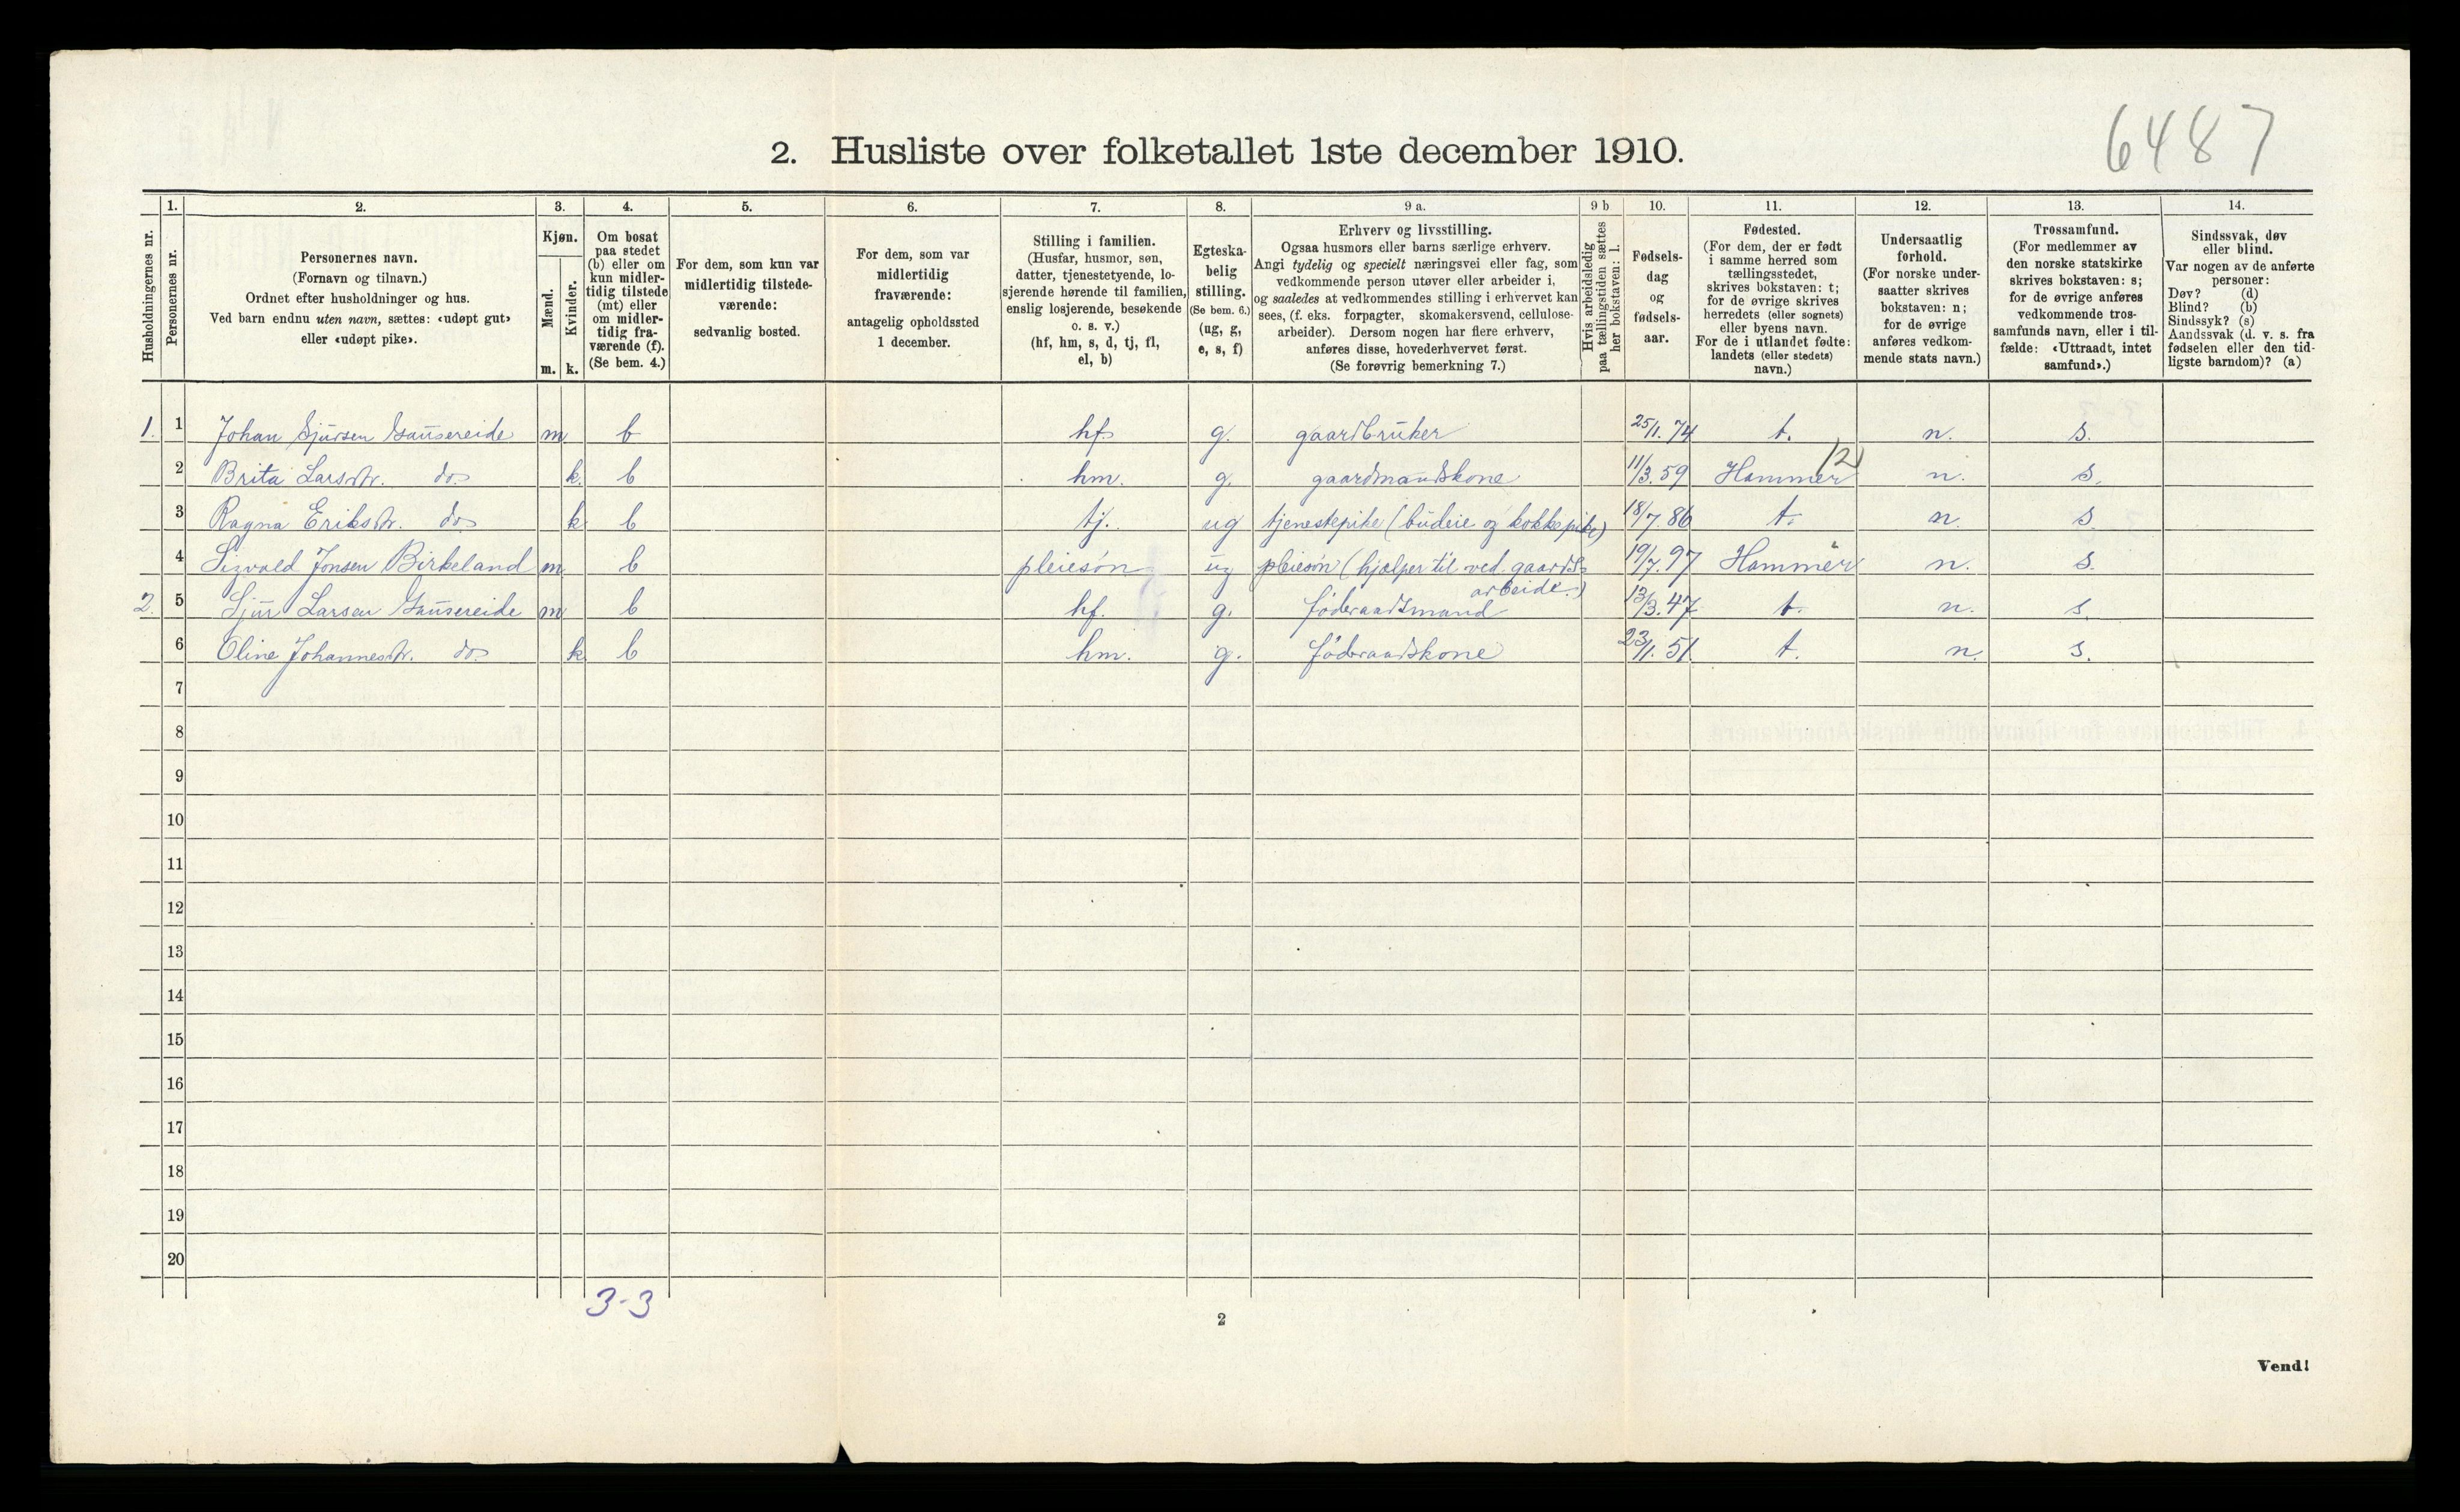 6487
2. Husliste over folketallet 1ste december 1910.
Husholdningernes nr.
1. Personernes nr.
2. Personernes navn.
(Fornavn og tilnavn.)
Ordnet efter husholdninger og hus.
Ved barn endnu uten navn, sættes: «udøpt gut»
eller «udøpt pike».
3. Kjøn.
Mænd. Kvinder.
m. k.
4. Om bosat
paa stedet
(b) eller om
kun midler-
tidig tilstede
(mt) eller
om midler-
tidig fra-
værende (f).
(Se bem. 4.)
5. For dem, som kun var
midlertidig tilstede-
værende:
sedvanlig bosted.
6. For dem, som var
midlertidig
fraværende:
antagelig opholdssted
1 december.
7. Stilling i familien.
(Husfar, husmor, søn,
datter, tjenestetyende, lo-
sjerende hørende til familien,
enslig losjerende, besøkende
o. s. v.)
(hf, hm, s, d, tj, fl,
el, b)
8. Egteska-
belig
stilling.
(Se bem. 6.)
(ug, g,
e, s, f)
9 a. Erhverv og livsstilling.
Ogsaa husmors eller barns særlige erhverv.
Angi tydelig og specielt næringsvei eller fag, som
vedkommende person utøver eller arbeider i,
og saaledes at vedkommendes stilling i erhvervet kan
sees, (f. eks. forpagter, skomakersvend, cellulose-
arbeider). Dersom nogen har flere erhverv,
anføres disse, hovederhvervet først.
(Se forøvrig bemerkning 7.)
9 b Hvis arbeidsledig
paa tællingstiden sættes
her bokstaven: l.
10. Fødsels-
dag
og
fødsels-
aar.
11. Fødested.
(For dem, der er født
i samme herred som
tællingsstedet,
skrives bokstaven: t;
for de øvrige skrives
herredets (eller sognets)
eller byens navn.
For de i utlandet fødte:
landets (eller stedets)
navn.)
12. Undersaatlig
forhold.
(For norske under-
saatter skrives
bokstaven: n;
for de øvrige
anføres vedkom-
mende stats navn.)
13. Trossamfund.
(For medlemmer av
den norske statskirke
skrives bokstaven: s;
for de øvrige anføres
vedkommende tros-
samfunds navn, eller i til-
fælde: «Uttraadt, intet
samfund».)
14. Sindssvak, døv
eller blind.
Var nogen av de anførte
personer:
Døv? (d)
Blind? (b)
Sindssyk? (s)
Aandssvak (d. v. s. fra
fødselen eller den tid-
ligste barndom)? (a)
1. 1 Johan Sjursen Gausereide m b hf g. gaardbruker 25/1. 74 t. n. s.
2 Brita Larsdtr. do k. b hm. g. gaardmandskone 11/3. 59 Hammer 12 n. s.
3 Ragna Eriksdtr. do k b tj. ug tjenestepike (budeie og kokkepike) 18/7. 86 t. n. s.
4 Sigvald Jonsen Birkeland m b pleiesøn ug pleiesøn (hjælper til ved gaards-
arbeide.) 19/7. 97 Hammer n. s.
2. 5 Sjur Larsen Gausereide m b hf. g. føderaadsmand 13/3. 47 t. n. s.
6 Oline Johannesdtr. do k b hm. g. føderaadskone 23/1. 51 t. n. s.
7
8
9
10
11
12
13
14
15
16
17
18
19
20
3-3
2
Vend!